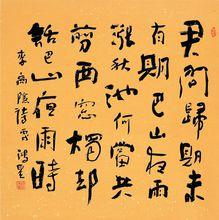 君問歸期未
有期巴山夜雨
漲秋池何當共
剪西窗燭却
話巴山夜雨時
李商隱詩